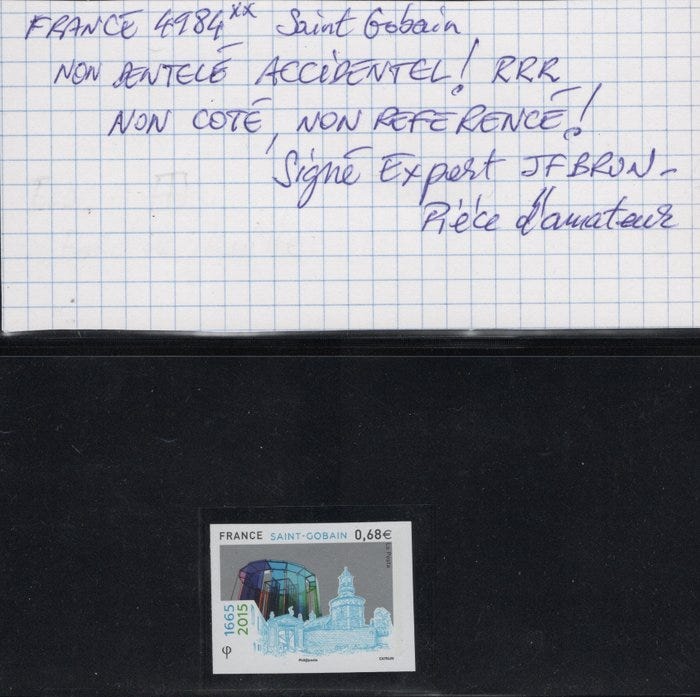 FRANCE 4984xx Saint Gobain
NON DENTELÉ ACCIDENTEL! RRR
NON COTÉ, NON REFERENCÉ!
Signé Expert JFBRUN-
Pièce d'amateur
FRANCE SAINT-GOBAIN 0,68€
La Poste
1665
2015
φ Phil@poste